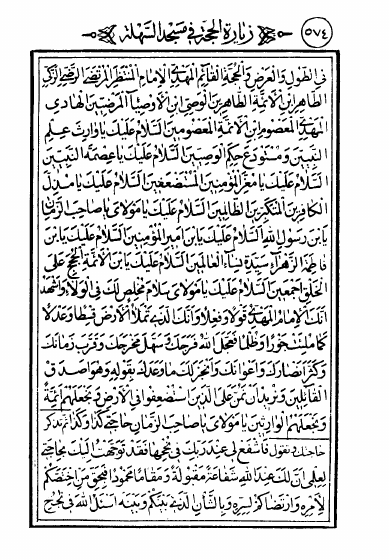 ٥٧٤
زيارة الحجة في مسجد السهلة
في الطول والعرض والحجة القائم المهدي الإمام المنتظر المرتضى الرضي الزكي
الطاهر ابن الأئمة الطاهرين الوصي ابن الأوصياء المرضيين الهادي
المهدي المعصوم ابن الأئمة المعصومين السلام عليك يا وارث علم
النبيين ومستودع حكم الوصيين السلام عليك يا عصمة النبيين
السلام عليك يا معز المؤمنين المستضعفين السلام عليك يا مذل
الكافرين المتكبرين الظالمين السلام عليك يا مولاي يا صاحب الزمان
يا بن رسول الله السلام عليك يا بن أمير المؤمنين السلام عليك يا بن
فاطمة الزهراء سيدة نساء العالمين السلام عليك يا بن الأئمة الحجج على
الخلق أجمعين السلام عليك يا مولاي سلام مخلص لك في الولاء وأشهد
أنك الإمام المهدي قولا وفعلا وأنك الذي تملأ الأرض قسطا وعدلا
كما ملئت جورا وظلما فعجل الله فرجك وسهل مخرجك وقرب زمانك
وكثر أنصارك وأعوانك وأنجز لك ما وعدك بقوله وهو أصدق
القائلين ونريد أن نمن على الذين استضعفوا في الأرض ونجعلهم أئمة
ونجعلهم الوارثين يا مولاي يا صاحب الزمان حاجتي كذا وكذا ثم تذكر
حاجتك وتقول فاشفع لي عند ربك في نجحها فقد توجهت إليك بحاجتي
لعلمي أن لك عند الله شفاعة مقبولة ومقاما محمودا فبحق من اختصكم
لأمره وارتضاكم لسره وبالشأن الذي بينكم وبينه اسئل الله في نجح